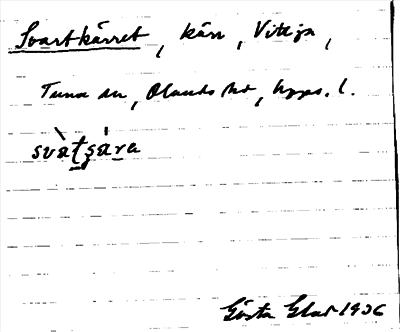 Svartkärret, kärr, Vittja,
Tuna sn, Olands hd, Upps. l.
svàtʂára
Gösta 1906